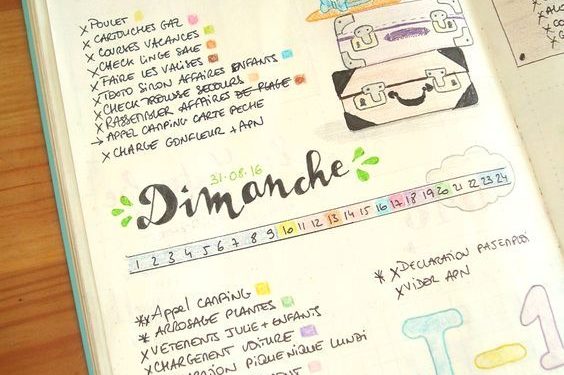 X POULET
X CARTOUCHES GAZ
X COURSES VACANCES
X CHECK LINGE SALE
X FAIRE LES VALISES
X TODO SIMON AFFAIRES ENFANTS
X CHECK TROUSSE SECOURS
X RASSEMBLER AFFAIRES DE PLAGE
→ APPEL CAMPING CARTE PECHE
X CHARGE GONFLEUR + APN
31-08-16
Dimanche
1 2 3 4 5 6 7 8 9 10 11 12 13 14 15 16 17 18 19 20 21 22 23 24
*X APPEL CAMPING
*X ARROSAGE PLANTES
X VETEMENTS JULIE + ENFANTS
X CHARGEMENT VOITURE
PIQUE NIQUE LUNDI
* X DECLARATION
X VIDER APN
T-1